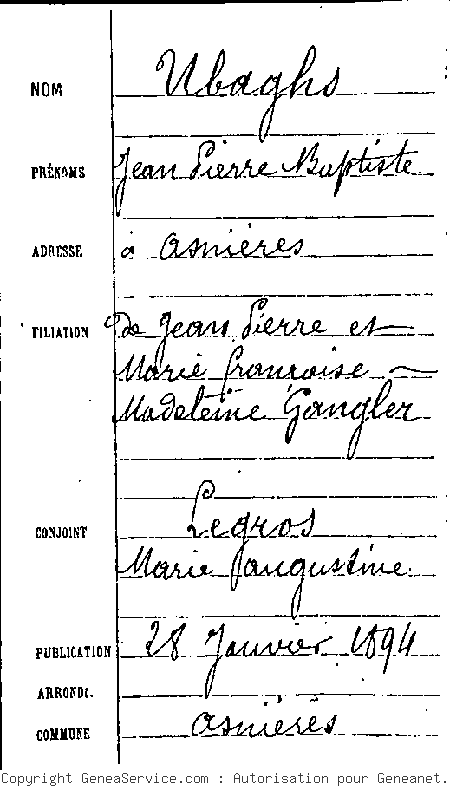 NOM Ubaghs
PRÉNOMS Jean Pierre Baptiste
ADRESSE à Asnières
FILIATION de Jean Pierre et
Marie Françoise
Madeleine Gangler
CONJOINT Legros
Marie
PUBLICATION 28 Janvier 1894
ARRONDt.
COMMUNE Asnières
Copyright GeneaService.com : Autorisation pour Geneanet.